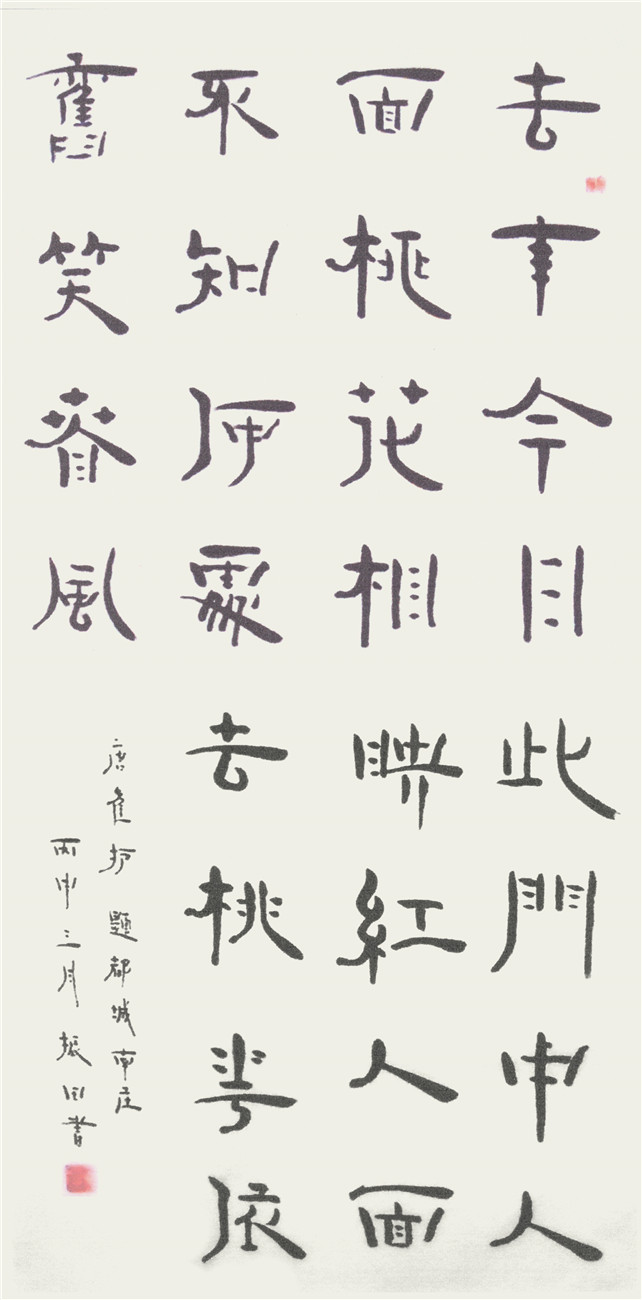 去年今日此門中人
面桃花相映紅人面
不知何處去桃華依
舊笑春風
唐崔护題都城南庄
丙申三月振書